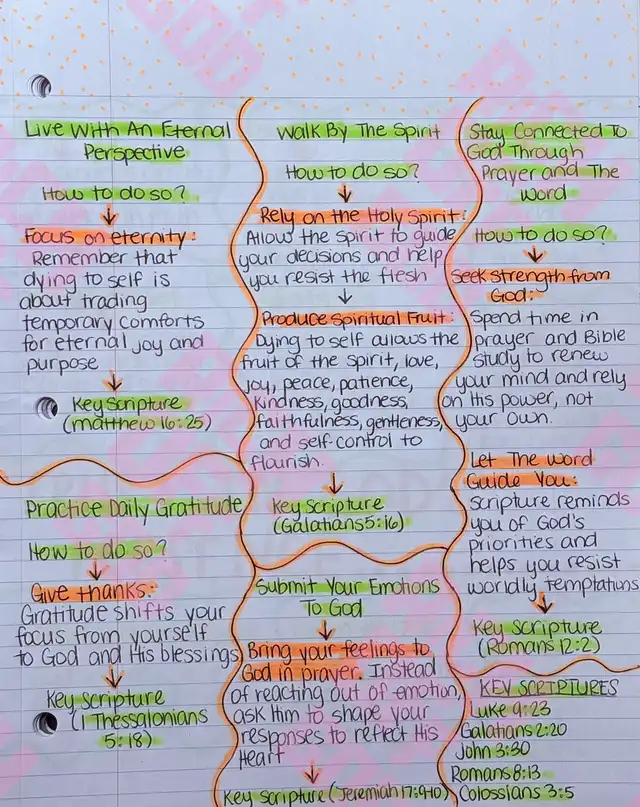 Live With An Eternal
Perspective
How to do so?
Focus on eternity:
Remember that
dying to self is
about trading
temporary comforts
for eternal joy and
purpose
Key Scripture
(Matthew 16:25)
Practice Daily Gratitude
How to do so?
Give thanks:
Gratitude shifts your
focus from yourself
to God and His blessings
Key Scripture
(1 Thessalonians
5:18)
Walk By The Spirit
How to do so?
Rely on the Holy Spirit:
Allow the spirit to guide
your decisions and help
you resist the flesh
Produce Spiritual Fruit:
Dying to self allows the
fruit of the spirit, love,
joy, peace, patience,
kindness, goodness,
faithfulness, gentleness,
and self-control to
flourish.
Key Scripture
(Galatians 5:16)
Submit Your Emotions
To God
Bring your feelings to
God in prayer. Instead
of reaching out of emotion,
ask Him to shape your
responses to reflect His
Heart
Key Scripture (Jeremiah 17:9-10)
Stay Connected To
God Through
Prayer and The
Word
How to do so?
Seek strength from
God:
Spend time in
prayer and Bible
study to renew
your mind and rely
on His power, not
your own.
Let The word
Guide You:
Scripture reminds
you of God's
priorities and
helps you resist
worldly temptations
Key Scripture
(Romans 12:2)
KEY SCRIPTURES
Luke 9:23
Galatians 2:20
John 3:30
Romans 8:13
Colossians 3:5